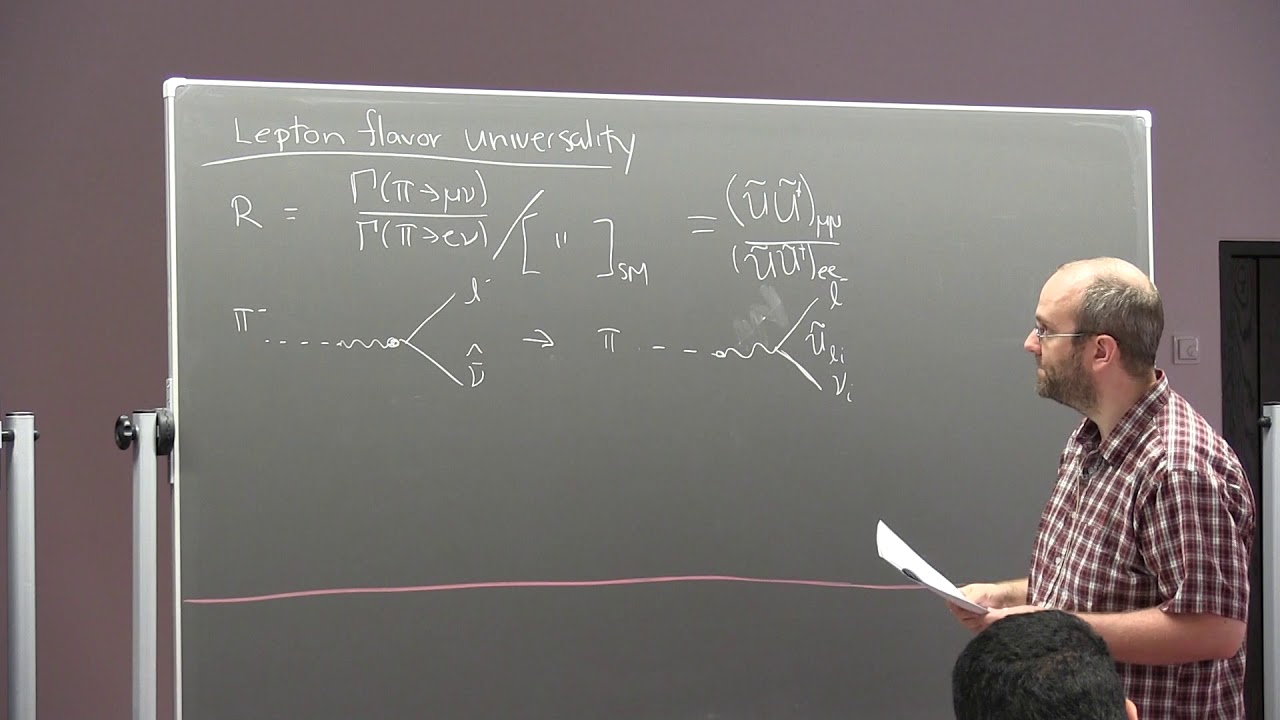 Lepton flavor universality
R = Γ(π→μν) / Γ(π→eν) / [ " ]SM = (ŨŨ†)μμ / (ŨŨ†)ee
π⁻ l⁻ ν̄̂ → π l Ũli νi